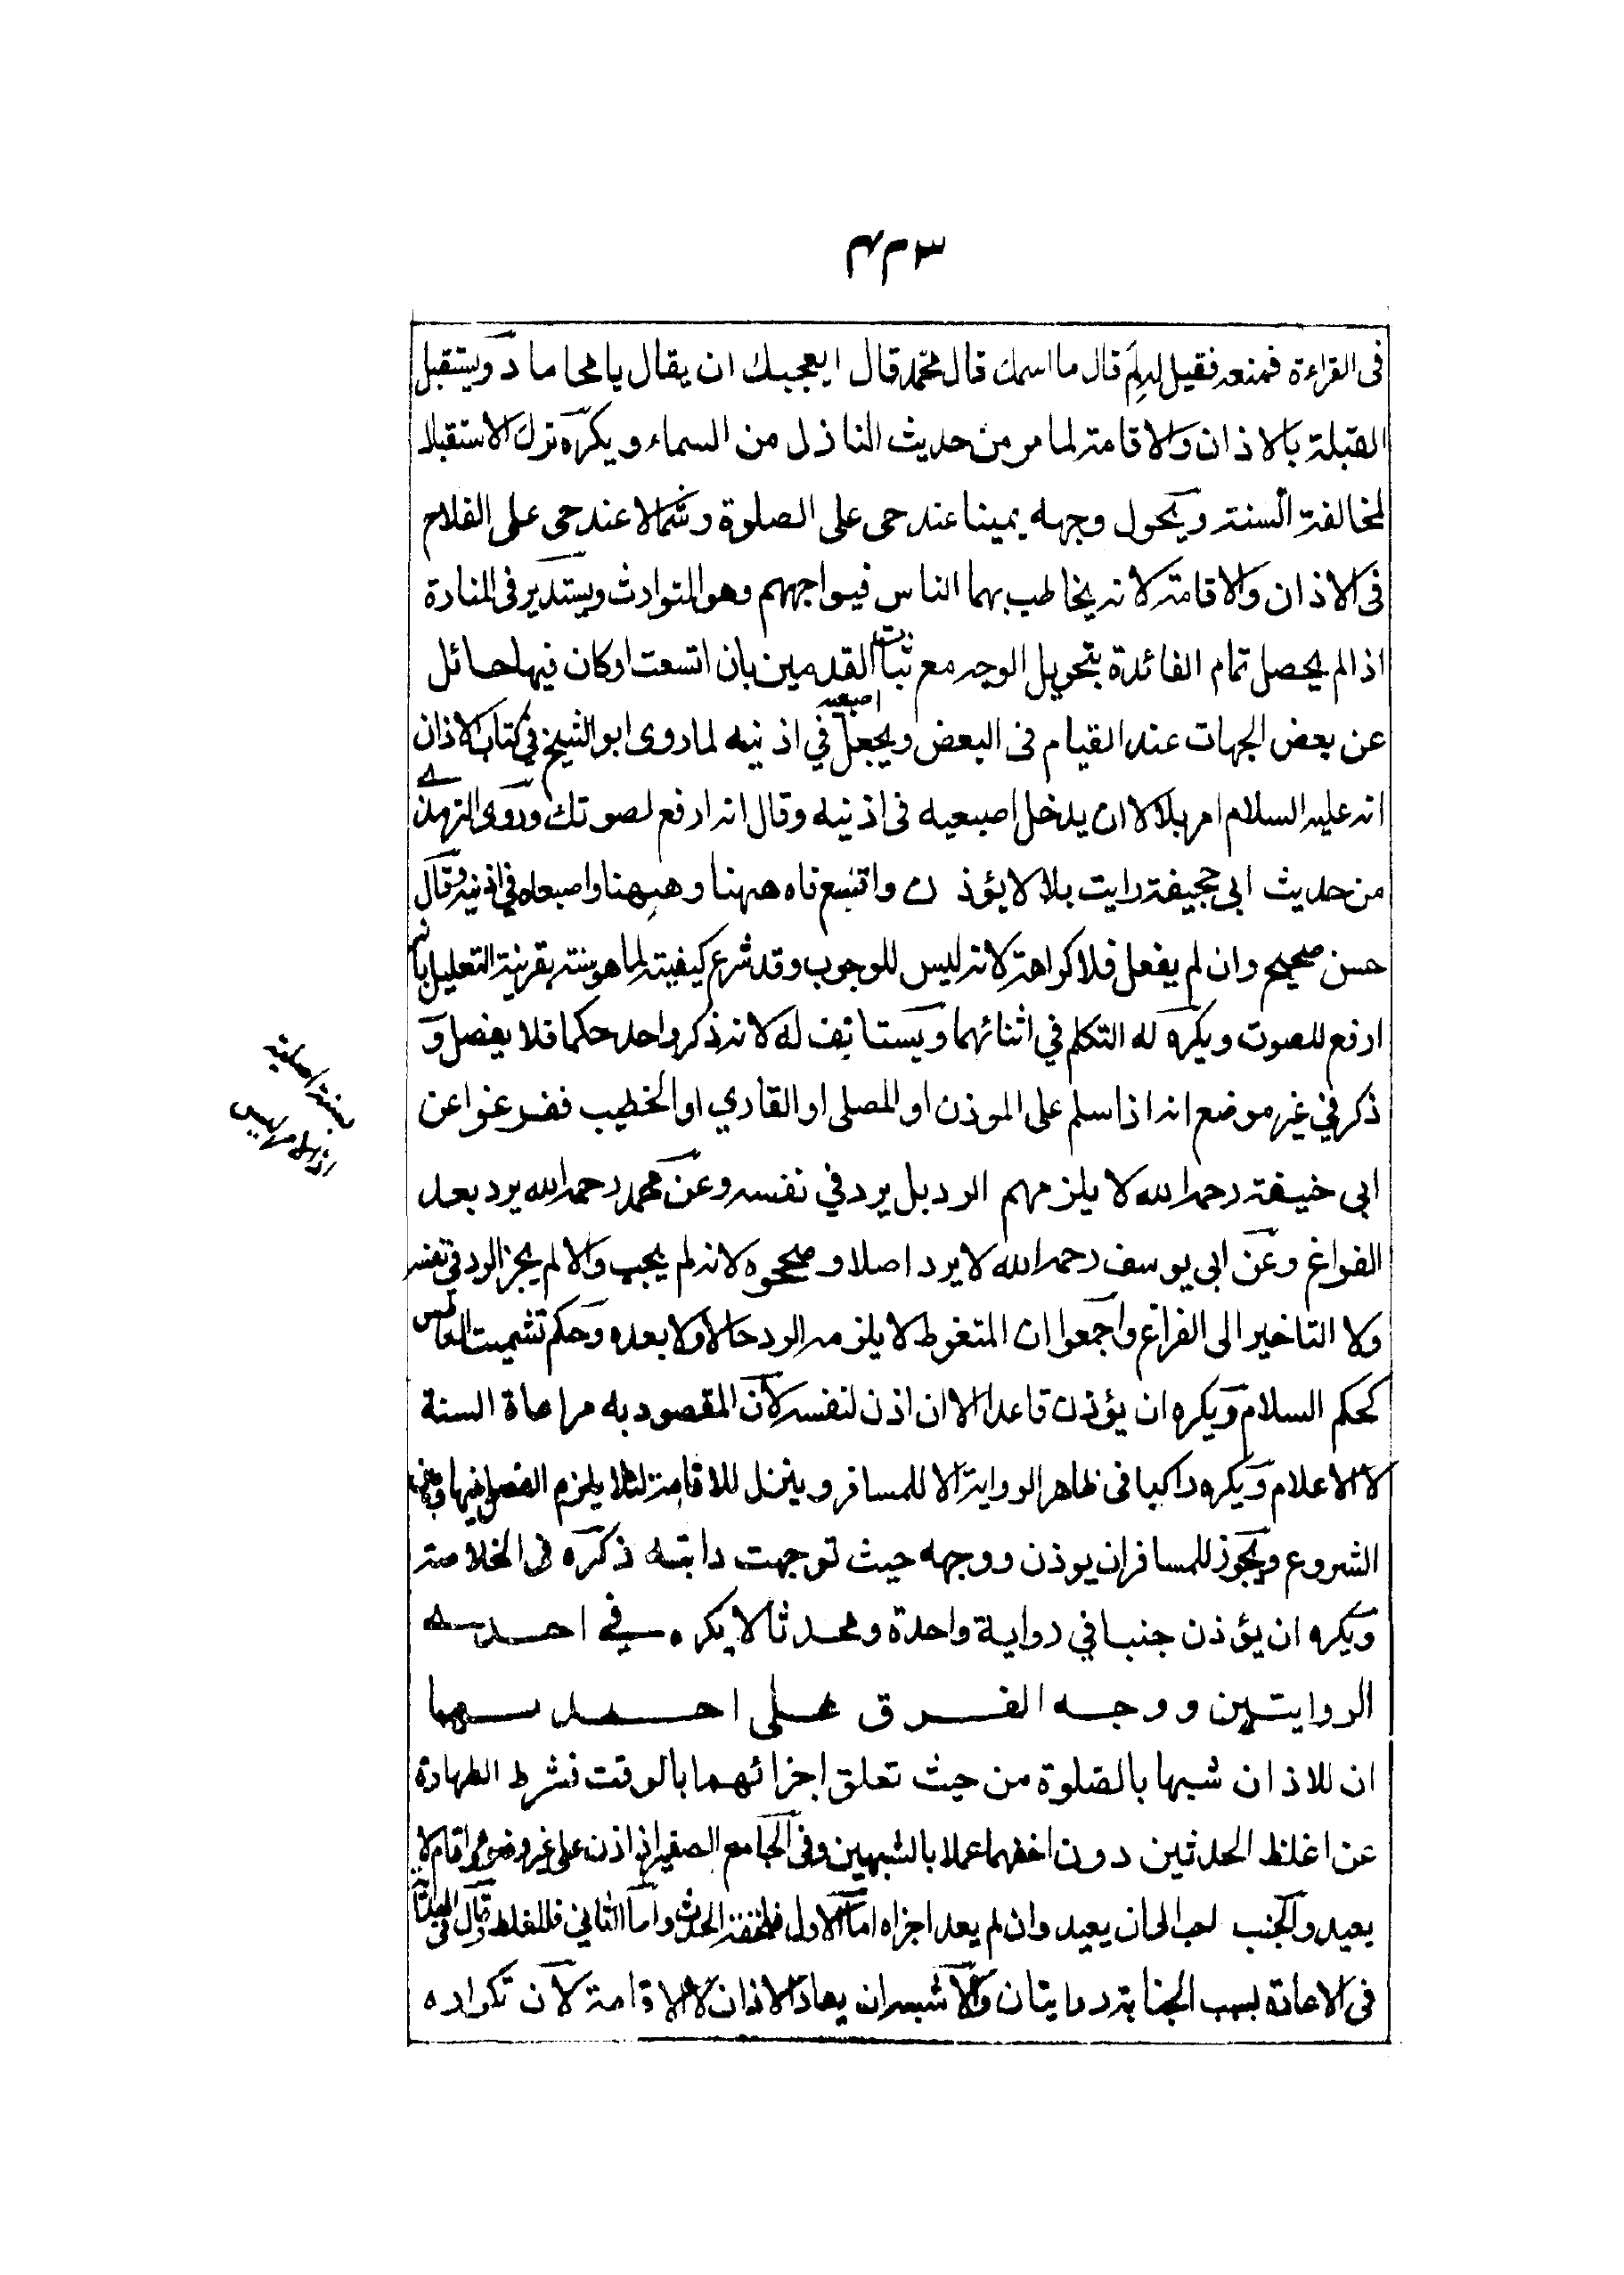 ٣٤٤
فى القراءة فمنعه فقيل له لم قال ما اسمك قال محمد قال ايعجبك ان يقال يا محاماد ويستقبل
القبلة بالاذان والاقامة لما مر من حديث النازل من السماء ويكره ترك الاستقبال
لمخالفة السنة ويحول وجهه يمينا عند حى على الصلوة وشمالا عند حى على الفلاح
فى الاذان والاقامة لانه يخاطب بهما الناس فيواجههم وهو المتوارث ويستدير فى المنارة
اذا لم يحصل تمام الفائدة بتحويل الوجه مع ثبات القدمين بان اتسعت اوكان فيها حائل
عن بعض الجهات عند القيام فى البعض ويجعل اصبعيه في اذنيه لما روى ابو الشيخ في كتاب الاذان
انه عليه السلام امر بلالا ان يدخل اصبعيه فى اذنيه وقال انه ارفع لصوتك وروى الترمذى
من حديث ابى جحيفة رايت بلالا يؤذن واتتبع فاه ههنا وههنا واصبعاه في اذنيه وقال
حسن صحيح وان لم يفعل فلا كراهة لانه ليس للوجوب وقد شرع كيفيته لما هو سنة بقرينة التعليل بانه
ارفع للصوت ويكره له التكلم في اثنائهما ويستانف له لانه ذكر واحد حكما فلا يفصل و
ذكر في غير موضع انه اذا سلم على الموذن او المصلى او القاري او الخطيب ففرغوا عن
ابى حنيفة رحمه الله لا يلزمهم الرد بل يرد في نفسه وعن محمد رحمه الله يرد بعد
الفراغ وعن ابى يوسف رحمه الله لا يرد اصلا وصححوه لانه لم يجب والا لم يجز الرد في نفسه
ولا التاخير الى الفراغ واجمعوا ان المتغوط لا يلزمه الرد حالا ولا بعده وحكم تشميت العاطس
كحكم السلام ويكره ان يؤذن قاعدا الا ان اذن لنفسه لان المقصود به مراعاة السنة
لا الاعلام ويكره راكبا فى ظاهر الرواية الا للمسافر وينزل للاقامة لئلا يلزم الفصل بينها وبين
الشروع ويجوز للمسافر ان يوذن ووجهه حيث توجهت دابته ذكره فى الخلاصة
ويكره ان يؤذن جنبا في رواية واحدة ومحدثا لا يكره في احدى
الروايتين ووجه الفرق على احدهما
ان للاذان شبها بالصلوة من حيث تعلق اجزائهما بالوقت فشرط الطهارة
عن اغلظ الحدثين دون اخفهما عملا بالشبهين وفى الجامع الصغير اذا اذن على غير وضوء واقام لا
يعيد والجنب احب الى ان يعيد وان لم يعد اجزاه اما الاول فلخفة الحدث واما الثاني فللغلظ قال فى الهداية
فى الاعادة بسبب الجنابة روايتان والاشبه ان يعاد الاذان لا الاقامة لان تكراره
لسنة اصلية